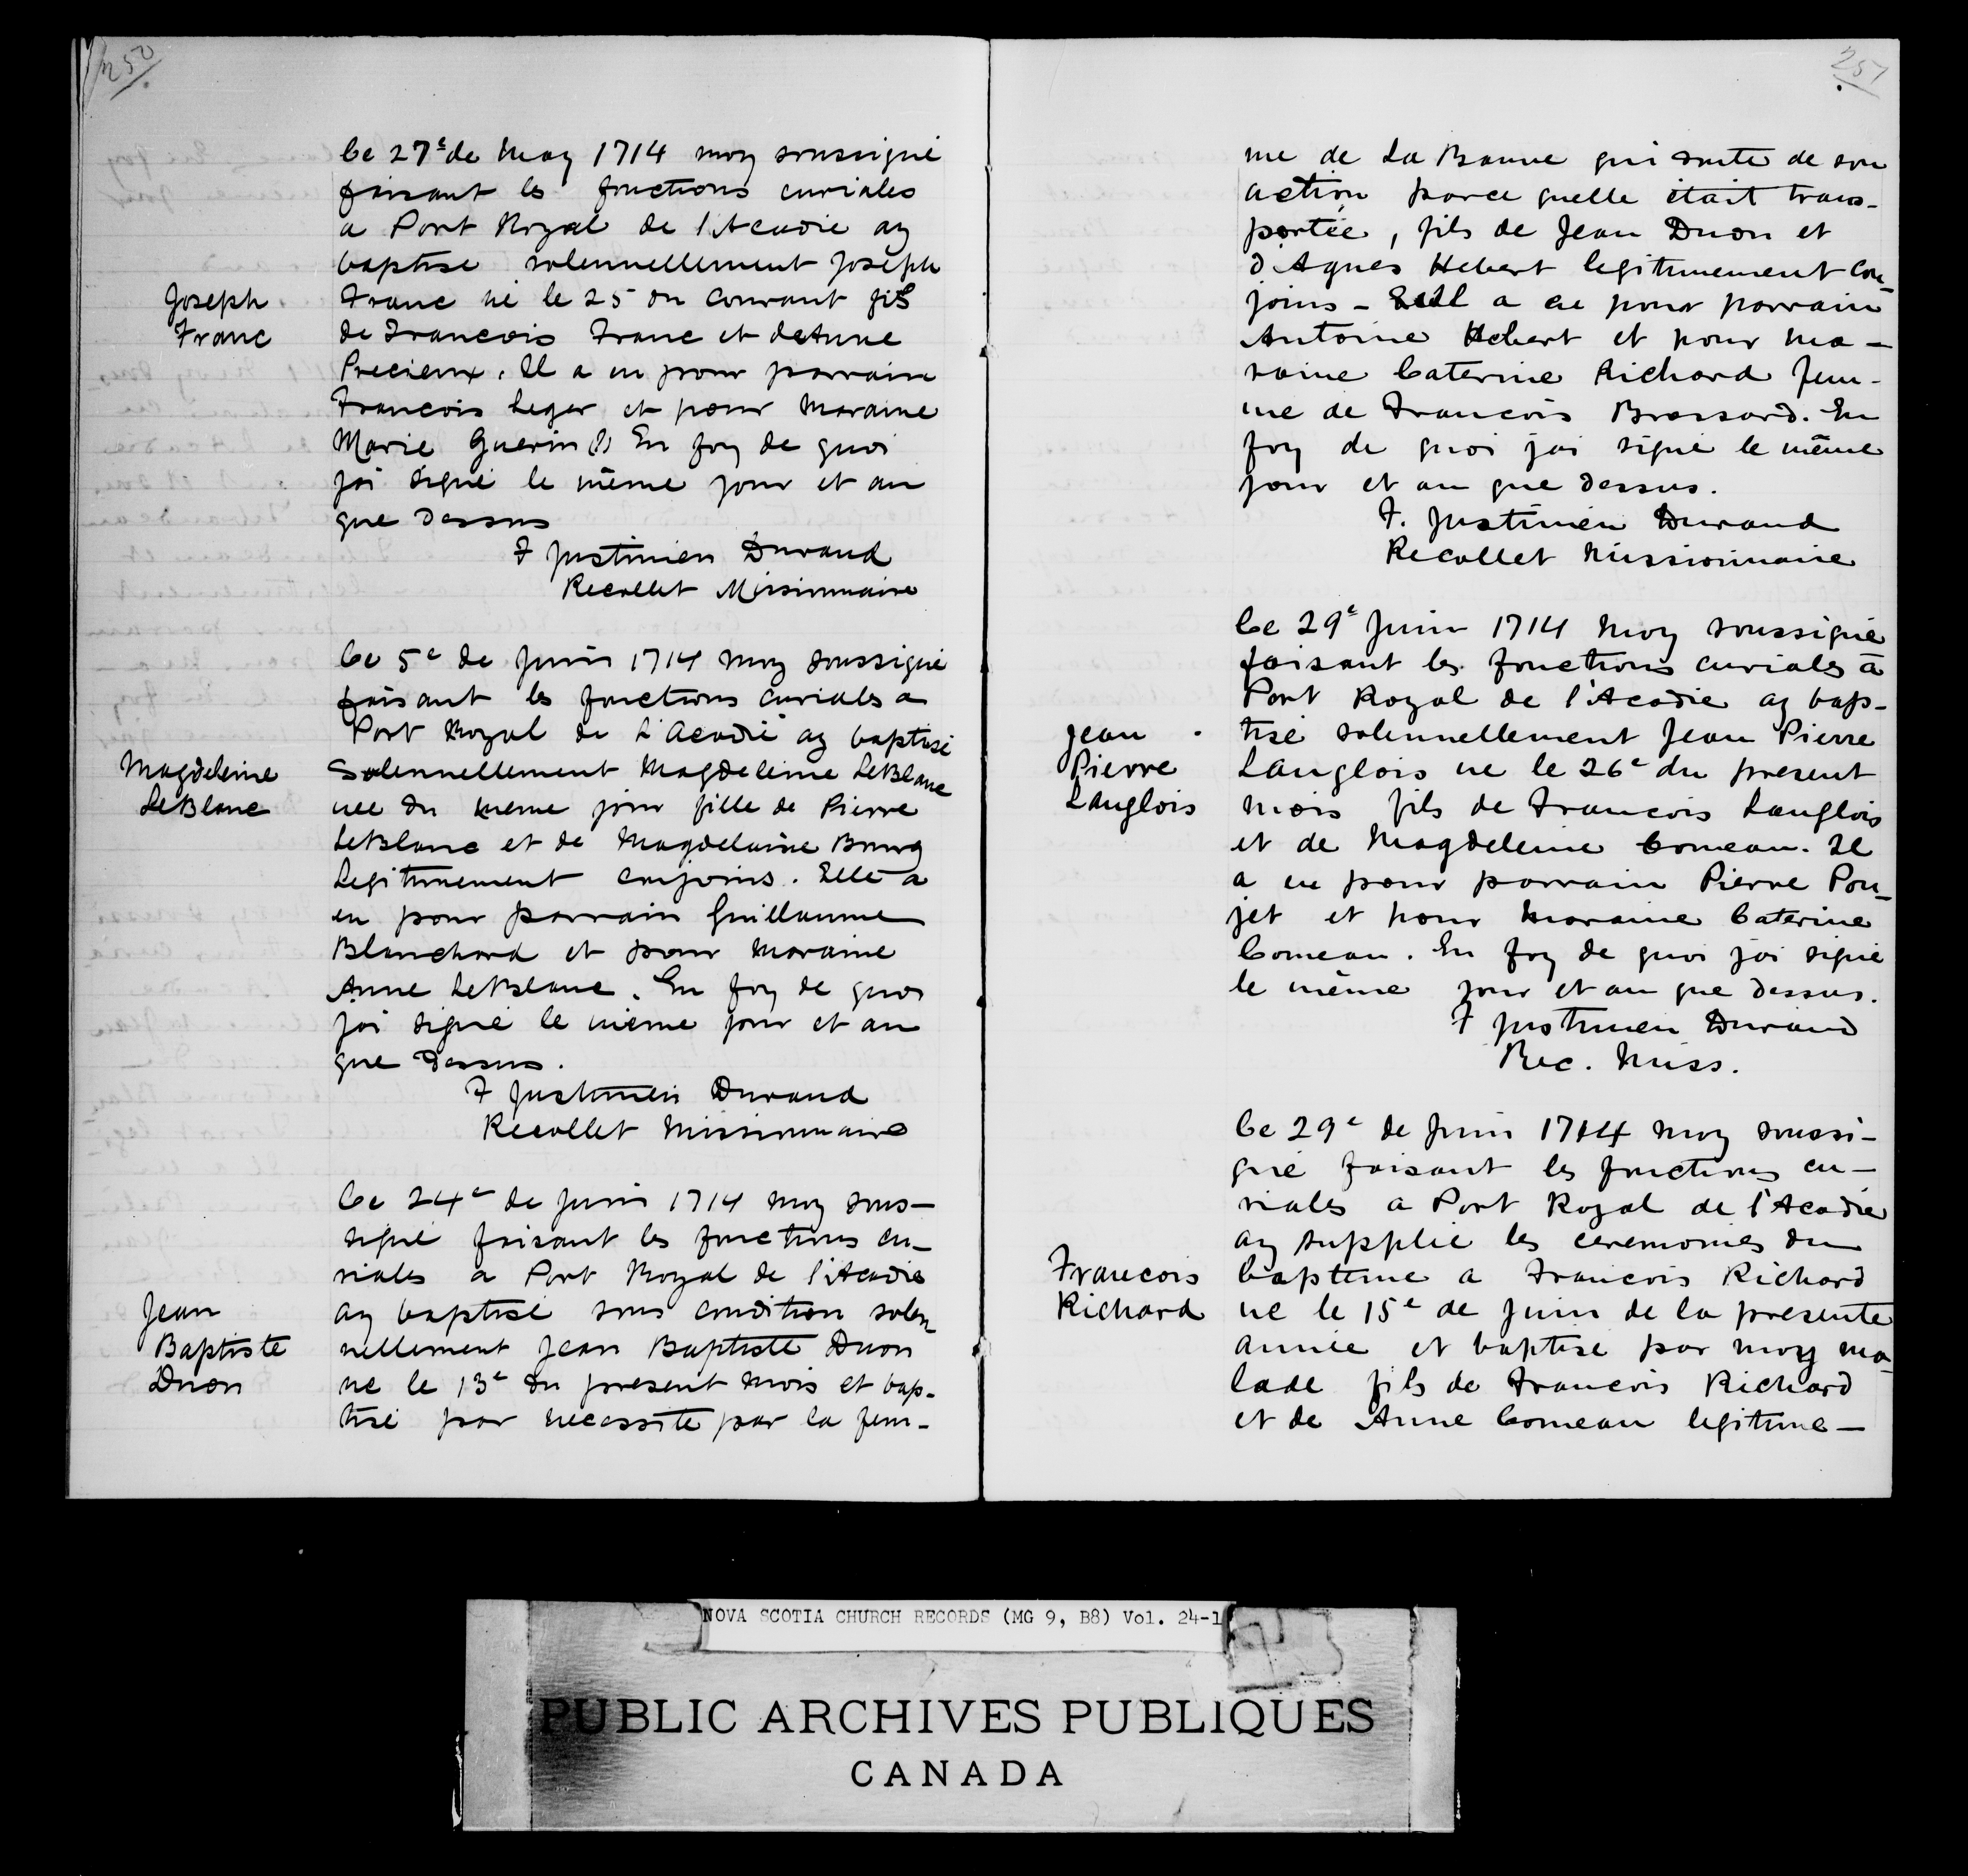 250
Ce 27e de may 1714 moy soussigné
faisant les fonctions curiales
a Port Royal de l'Acadie ay
baptise solennellement Joseph
Joseph Franc
Franc né le 25 du courant fils
de Francois Franc et de Anne
Precieux. Il a eu pour parrain
Francois Leger et pour maraine
Marie Guerin (?) En foy de quoi
jai signé le même jour et an
que dessus
F Justinien Durand
Recollet Missionnaire
Ce 5e de Juin 1714 moy soussigné
faisant les fonctions curiales a
Port Royal de L'Acadie ay baptisé
Magdeleine LeBlanc
Solennellement Magdeleine LeBlanc
née du meme jour fille de Pierre
LeBlanc et de Magdelaine Bourg
Legitimement conjoins. Elle a
eu pour parrain Guillaume
Blanchard et pour maraine
Anne LeBlanc. En foy de quoi
jai signé le même jour et an
que dessus.
F Justinien Durand
Recollet Missionnaire
Ce 24e de Juin 1714 moy sous-
signé faisant les fonctions cu-
riales a Port Royal de l'Acadie
Jean Baptiste Duon
ay baptisé sous condition solen
nellement Jean Baptiste Duon
né le 13e du present mois et bap-
tisé par necessité par la fem-
251
me de La Banne qui doute de son
action parce quelle était trans-
portée, fils de Jean Duon et
d'Agnes Hebert legitimement con-
joins - Il a eu pour parrain
Antoine Hebert et pour ma-
raine Caterine Richard fem-
me de Francois Brossard. En
foy de quoi jai signé le même
jour et an que dessus.
F. Justinien Durand
Recollet Missionnaire
Ce 29e Juin 1714 moy soussigné
faisant les fonctions curiales à
Port Royal de l'Acadie ay bap-
Jean Pierre Langlois
tisé solennellement Jean Pierre
Langlois ne le 26e du present
mois fils de Francois Langlois
et de Magdeleine Comeau. Il
a eu pour parrain Pierre Pou-
jet et pour maraine Caterine
Comeau. En foy de quoi jai signé
le même jour et an que dessus.
F Justinien Durand
Rec. Miss.
Ce 29e de Juin 1714 moy soussi-
gné faisant les fonctions cu-
riales a Port Royal de l'Acadie
ay supplié les ceremonies du
Francois Richard
bapteme a Francois Richard
né le 15e de Juin de la presente
année et baptise par moy ma-
lade fils de Francois Richard
et de Anne Comeau legitime-
NOVA SCOTIA CHURCH RECORDS (MG 9, B8) Vol. 24-1
PUBLIC ARCHIVES PUBLIQUES
CANADA